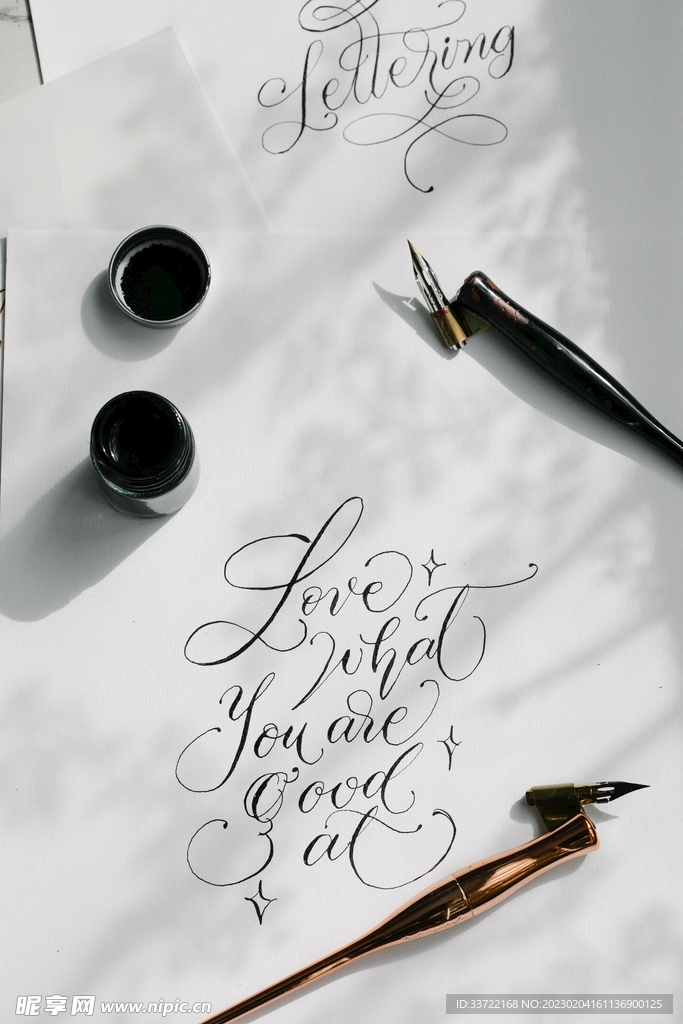 Lettering
Love
what
You are
Good
at
昵享网 www.nipic.cn
ID:33722168 NO:20230204161136900125